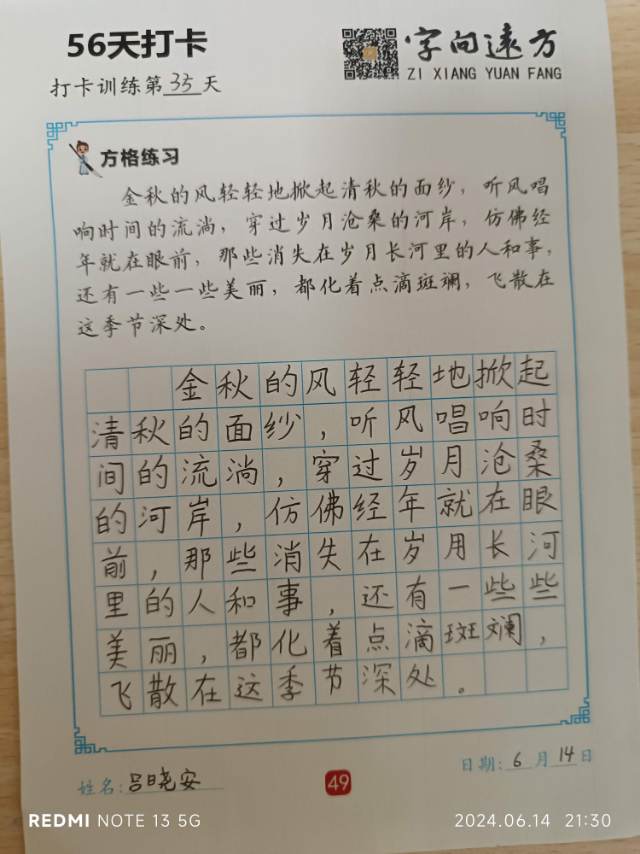 56天打卡
字向遠方
ZI XIANG YUAN FANG
打卡训练第35天
方格练习
金秋的风轻轻地掀起清秋的面纱，听风唱
响时间的流淌，穿过岁月沧桑的河岸，仿佛经
年就在眼前，那些消失在岁月长河里的人和事，
还有一些一些美丽，都化着点滴斑斓，飞散在
这季节深处。
金秋的风轻轻地掀起
清秋的面纱，听风唱响时
间的流淌，穿过岁月沧桑
的河岸，仿佛经年就在眼
前，那些消失在岁月长河
里的人和事，还有一些些
美丽，都化着点滴斑斓，
飞散在这季节深处。
姓名：吕晓安
49
日期：6月14日
REDMI NOTE 13 5G
2024.06.14 21:30